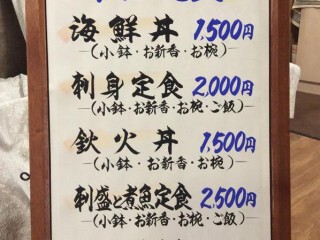 海鮮丼 1,500円
(小鉢・お新香・お椀)
刺身定食 2,000円
(小鉢・お新香・お椀・ご飯)
鉄火丼 1,500円
(小鉢・お新香・お椀)
刺盛と煮魚定食 2,500円
(小鉢・お新香・お椀・ご飯)